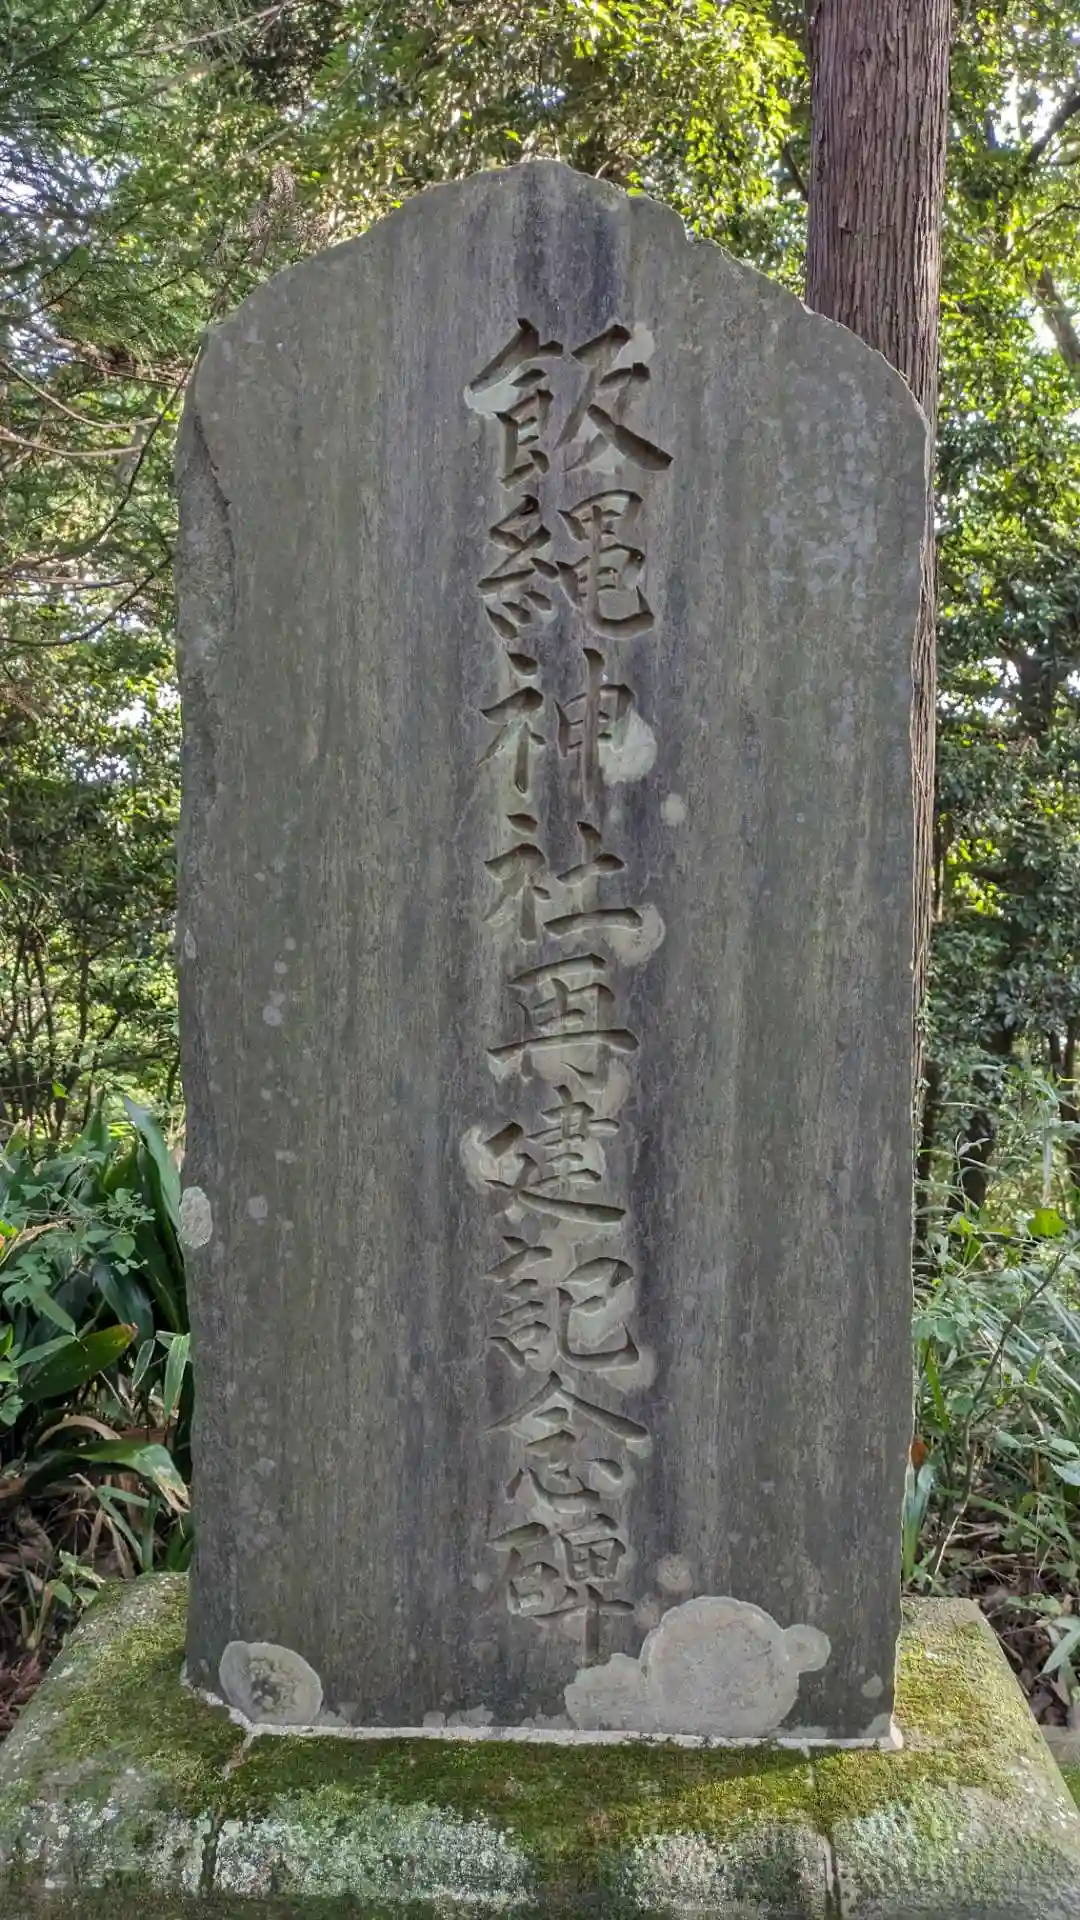 飯縄神社再建記念碑